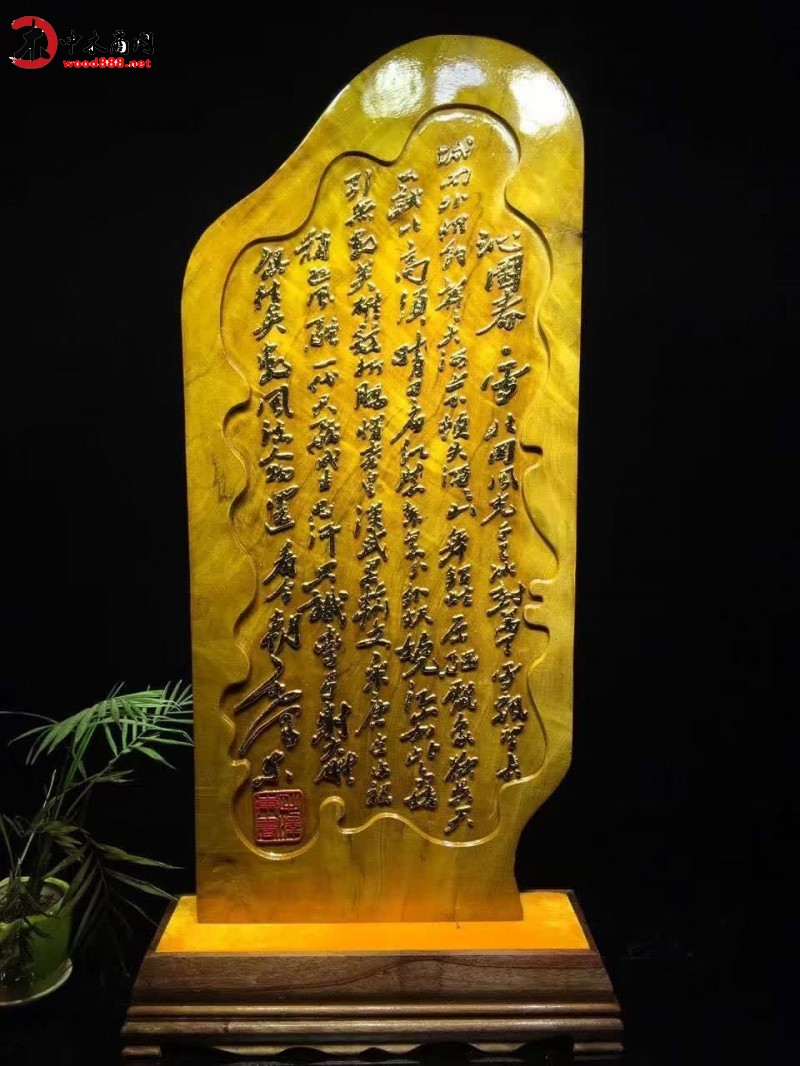 中木商网
wood888.net
沁園春 雪 北国風光千里冰封萬里雪飘望長
城内外惟餘莽莽大河上下頓失滔滔山舞銀蛇原馳蠟象欲與天
公試比高須晴日看红装素裹分外妖嬈江山如此多嬌
引無數英雄競折腰惜秦皇漢武略輸文采唐宗宋祖
稍遜風騷一代天驕成吉思汗只識彎弓射大雕
俱往矣數風流人物還看今朝 毛澤東
毛澤東書